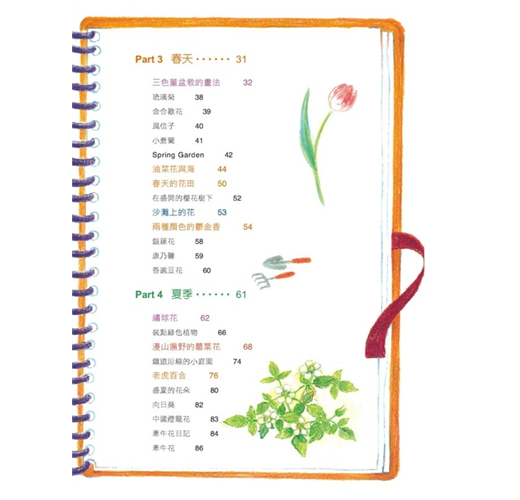 Part 3 春天 ······ 31
三色菫盆栽的畫法 32
琉璃菊 38
金合歡花 39
風信子 40
小蒼蘭 41
Spring Garden 42
油菜花與海 44
春天的花田 50
在盛開的櫻花樹下 52
沙灘上的花 53
兩種顏色的鬱金香 54
銀蓮花 58
康乃馨 59
香豌豆花 60
Part 4 夏季 ······ 61
繡球花 62
裝點綠色植物 66
漫山遍野的罌粟花 68
鐵道沿線的小庭園 74
老虎百合 76
盛夏的花朵 80
向日葵 82
中國燈籠花 83
牽牛花日記 84
牽牛花 86